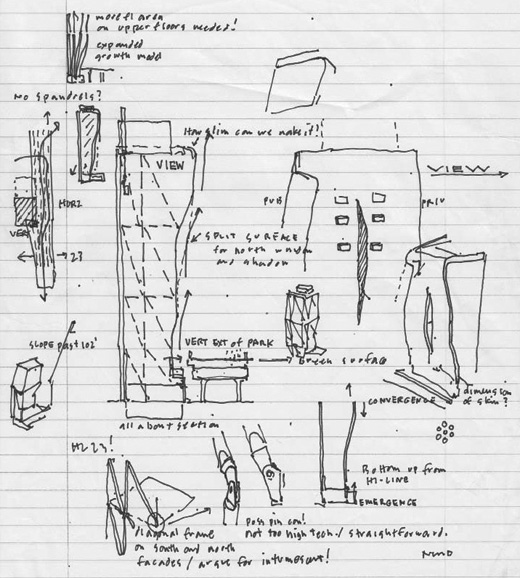 more fl area
on upper floors needed!
expanded
growth model
No spandrels?
How slim can we make it!
VIEW
VIEW
PUB
PRIV
HORZ
VERT
23
SPLIT SURFACE
for north window
and shadow
SLOPE past 102'
VERT EXT of PARK
Green surface
dimension
of skin?
CONVERGENCE
all about section
HL 23!
Bottom up from
HI-LINE
EMERGENCE
poss pin con!
not too high tech / straightforward.
diagonal frame
on south and north
facades / argue for intumescent!
NMD